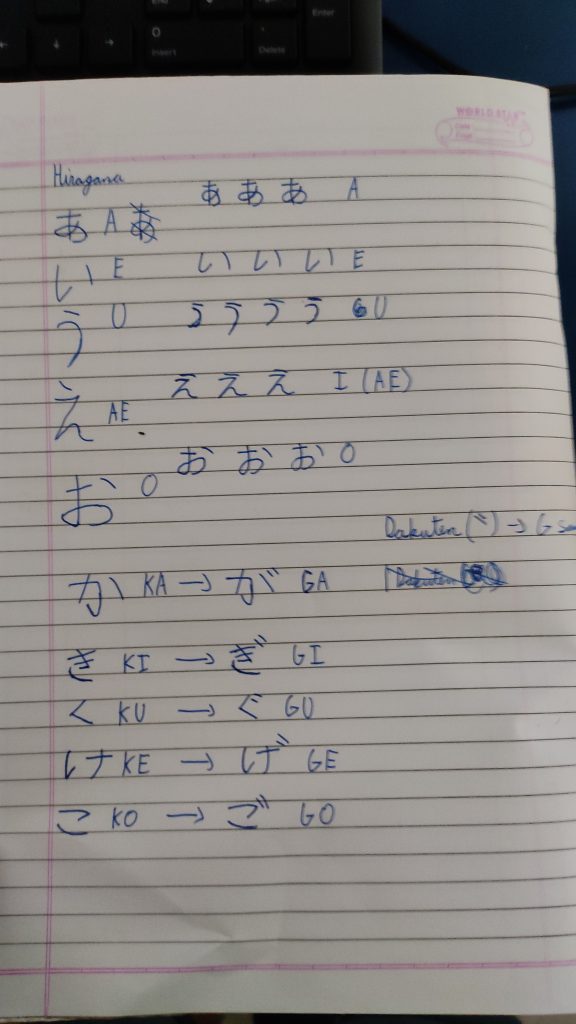 Enter
0
Insert
Delete
WORLD STAR
Hiragana
あ あ あ A
あ A
い E い い い E
う U う う う う U
え え え I (AE)
え AE.
お お お O
お O
Dakuten (゛) → G
か KA → が GA
き KI → ぎ GI
く KU → ぐ GU
け KE → げ GE
こ KO → ご GO